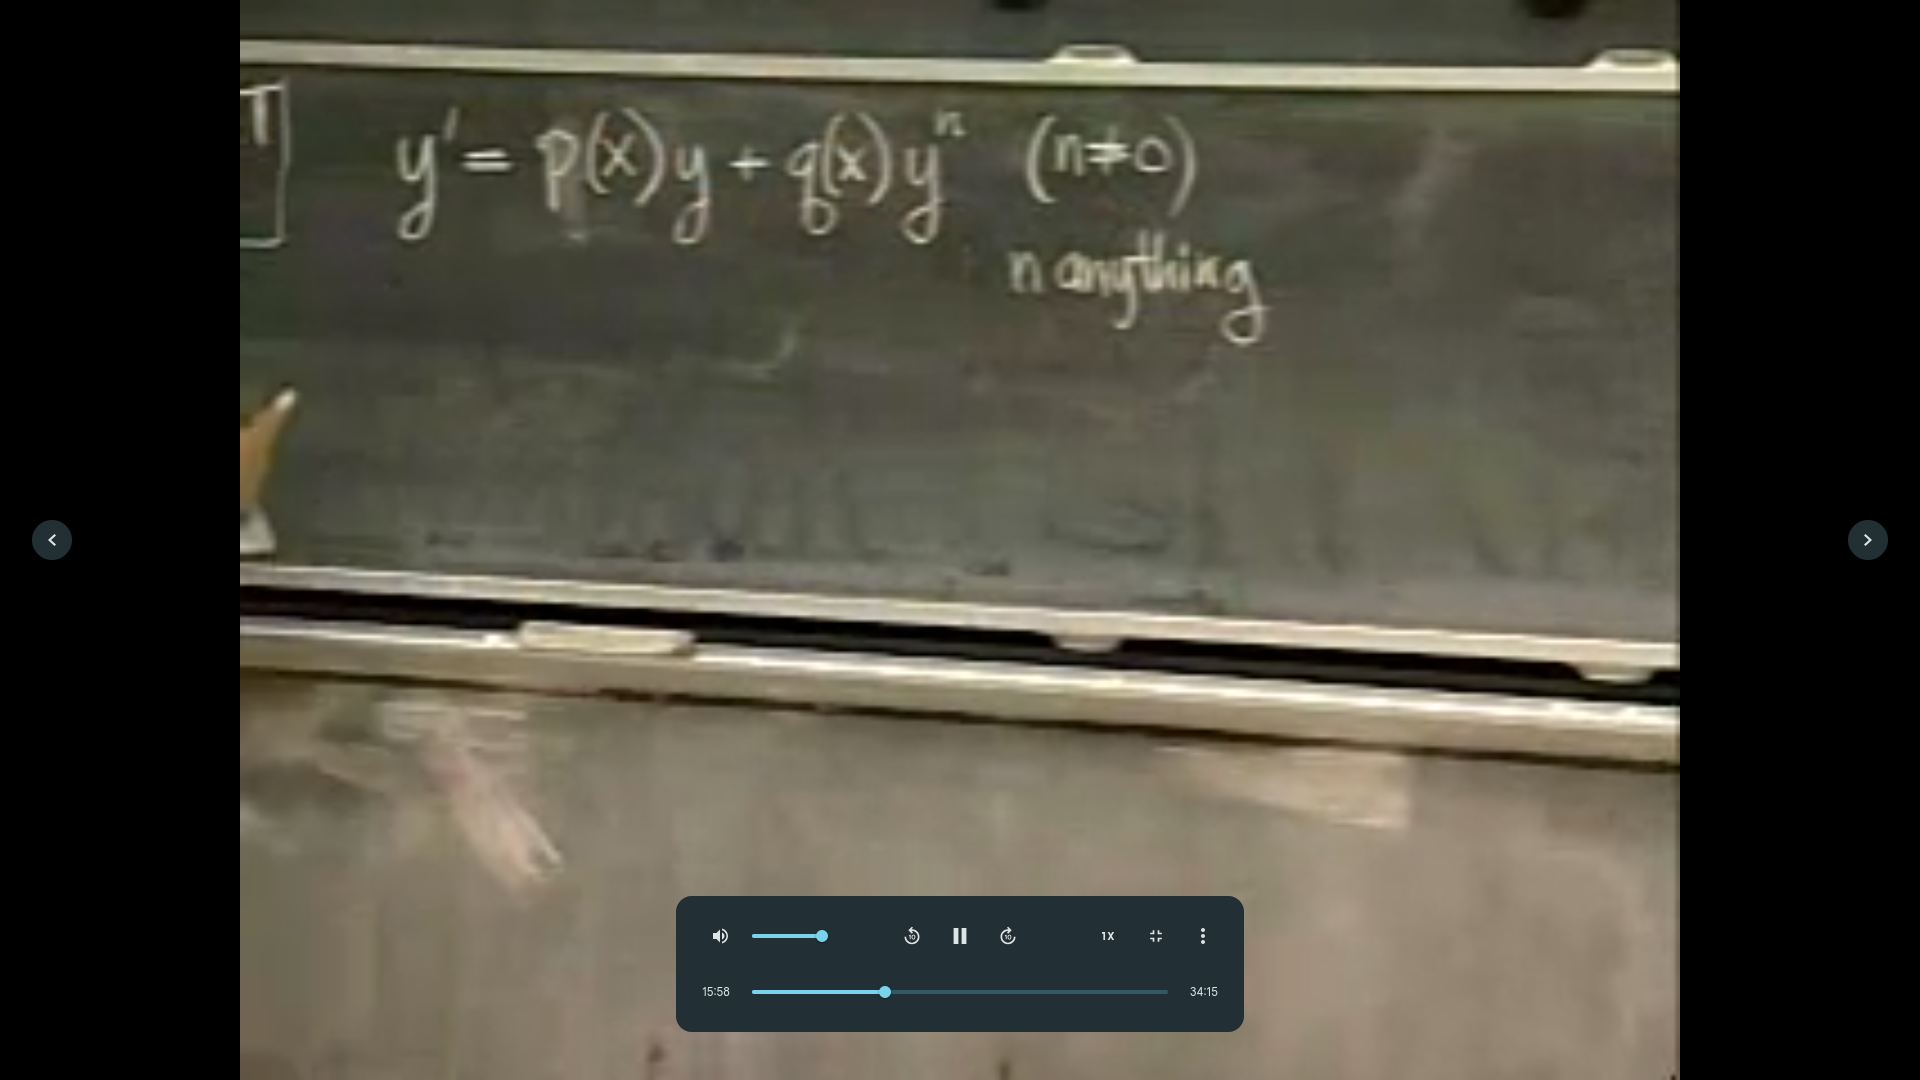 y' = p(x)y + q(x)y^n (n≠0)
n anything
10
10
1X
15:58
34:15